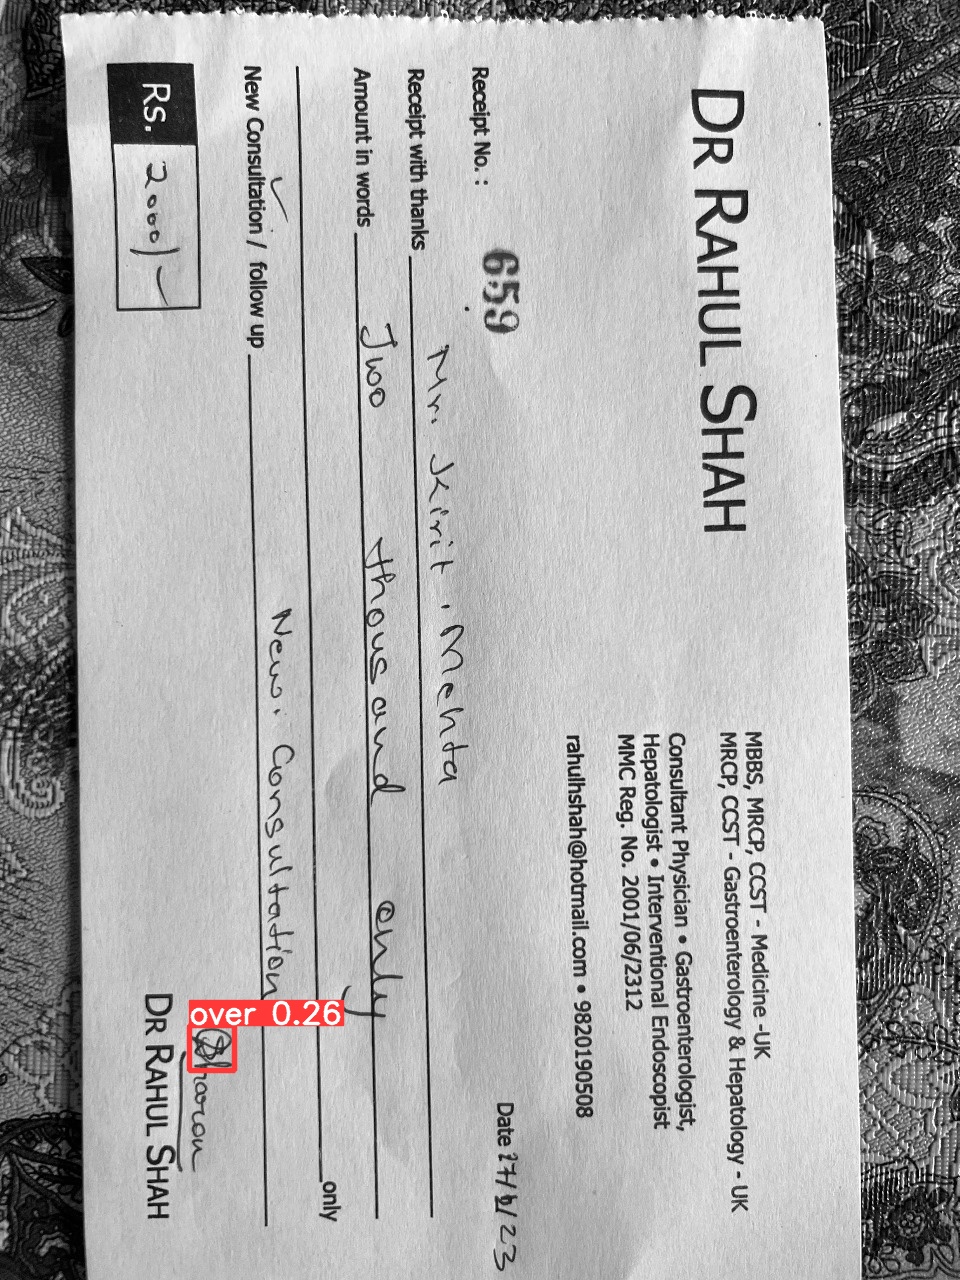 DR RAHUL SHAH
MBBS, MRCP, CCST - Medicine -UK
MRCP, CCST - Gastroenterology & Hepatology - UK
Consultant Physician • Gastroenterologist,
Hepatologist • Interventional Endoscopist
MMC Reg. No. 2001/06/2312
rahulhshah@hotmail.com • 9820190508
Receipt No. : 659 Date 27/ /23
Receipt with thanks Mr. Kirit. Mehta
Amount in words Two thousand only
only
New Consultation / follow up New. Consultation
over 0.26
Rs. 2000/-
DR RAHUL SHAH